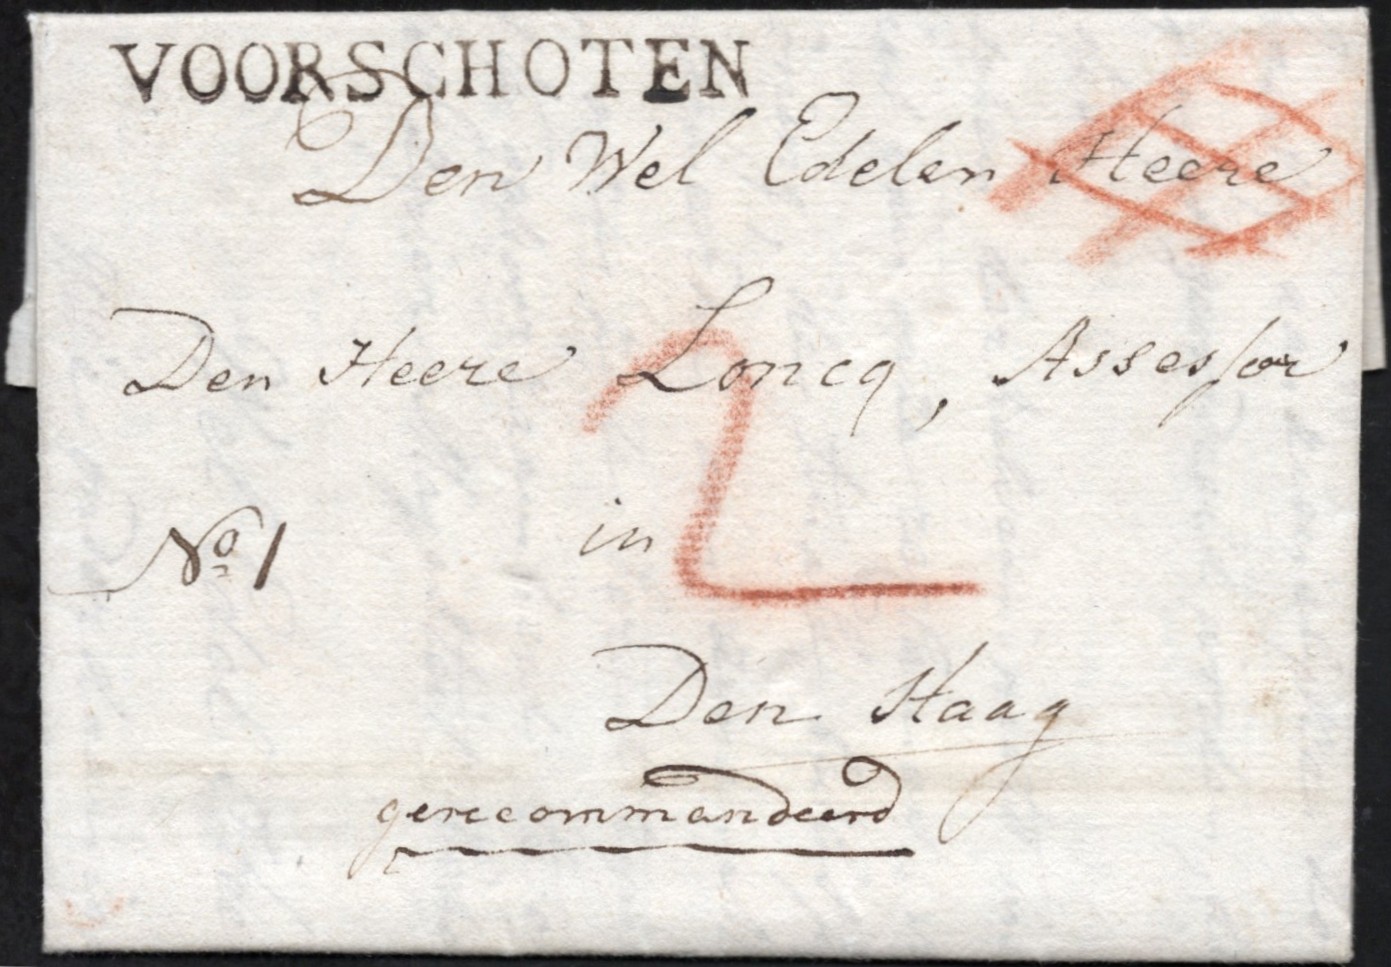 VOORSCHOTEN
Den Wel Edelen Heere
Den Heere Loncq, Assessor
No 1
in
2
Den Haag
gerecommandeerd